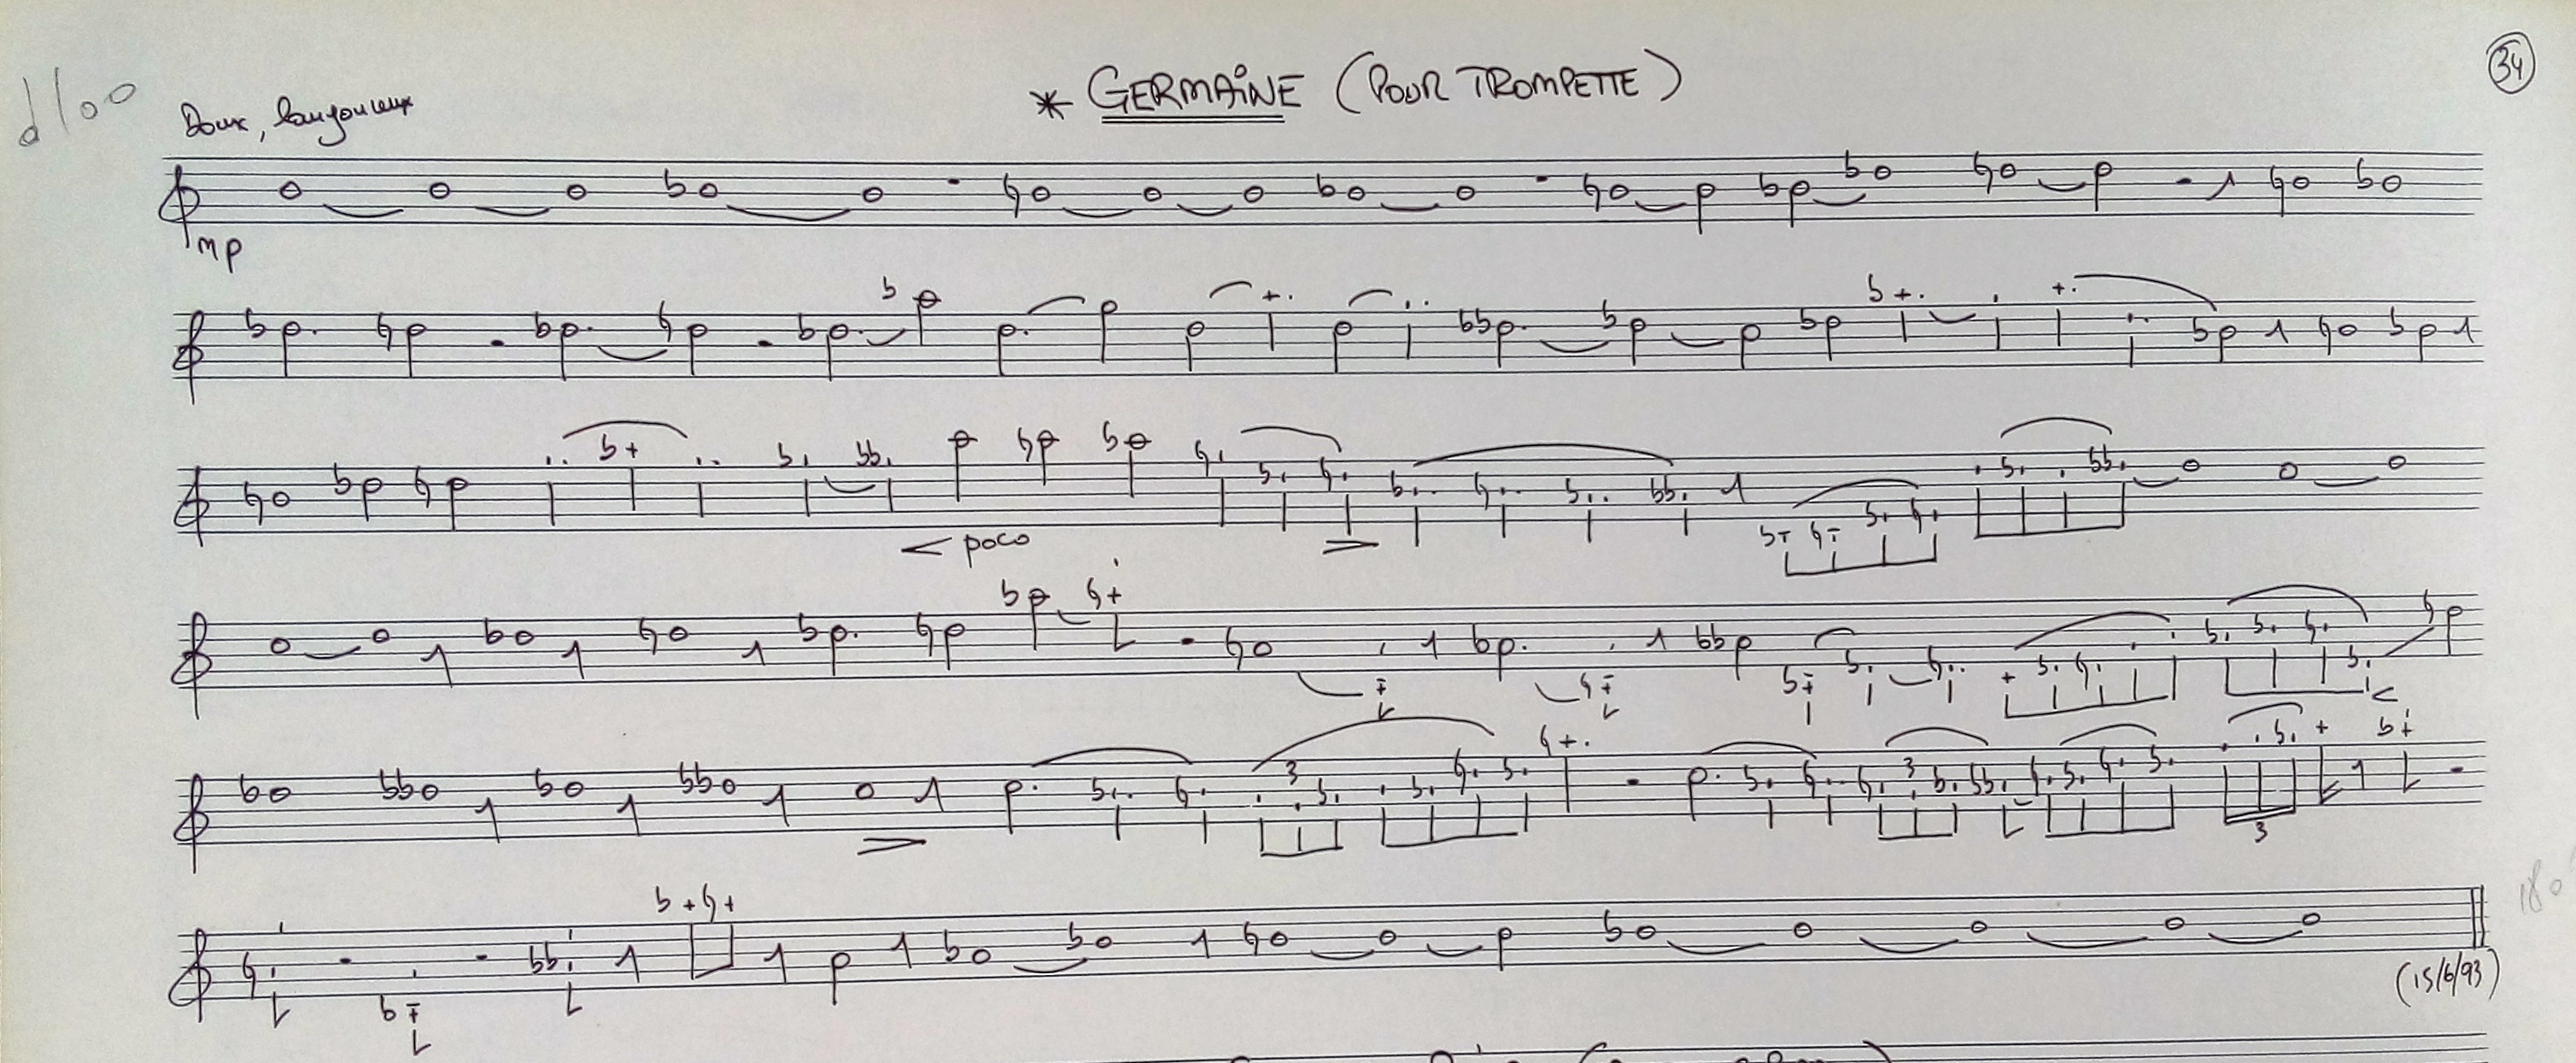 * GERMAINE (POUR TROMPETTE)
34
Doux, langoureux
mp
< poco
3
3
3
(15/6/93)